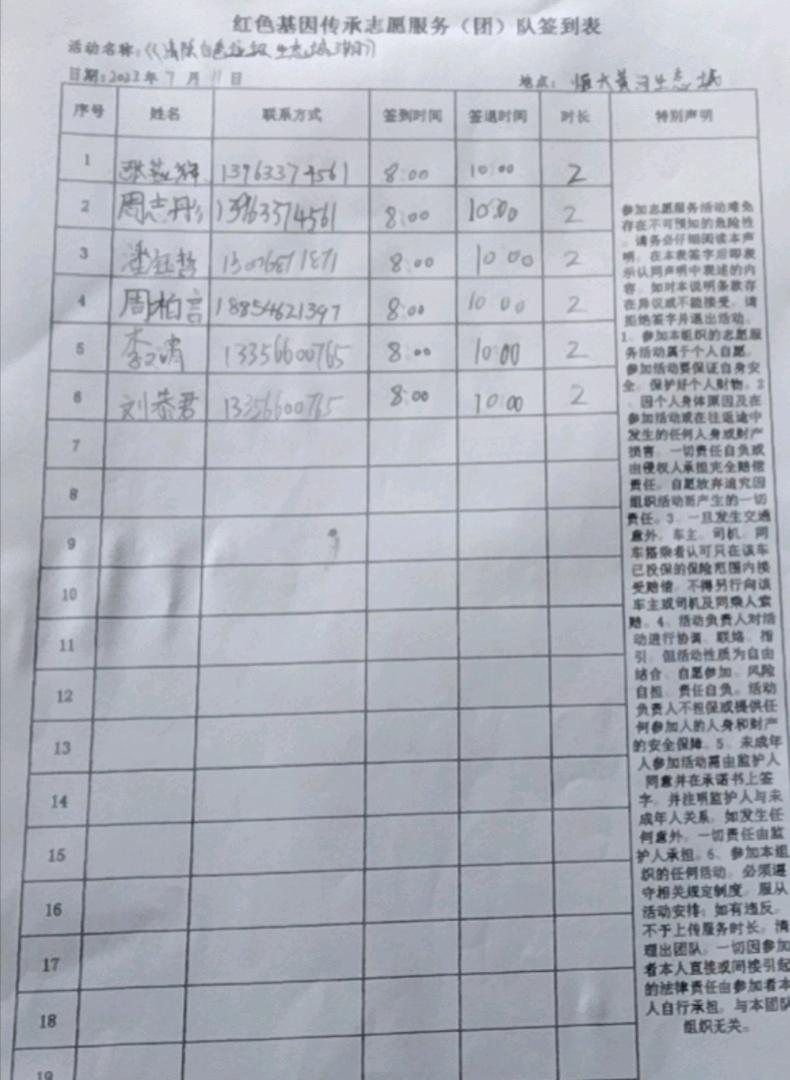 红色基因传承志愿服务（团）队签到表
活动名称：《清除白色垃圾 生态城
日期：2022年 7 月 11 日 地点： 恒大黄河生态城
序号 姓名 联系方式 签到时间 签退时间 时长 特别声明
1 13963374561 8:00 10:00 2
2 周志彤 13963374561 8:00 10:00 2
3 潘钰哲 8:00 10:00 2
4 周柏言 18854621397 8:00 10:00 2
5 李 13356600765 8:00 10:00 2
6 刘恭君 13356600765 8:00 10:00 2
7
8
9
10
11
12
13
14
15
16
17
18
19
参加志愿服务活动难免
存在不可预知的危险性
，请务必仔细阅读本声
明，在本表签字后即表
示认同声明中表述的内
容，如对本说明条款存
在异议或不能接受，请
拒绝签字并退出活动。
1、参加本组织的志愿服
务活动属于个人自愿，
参加活动要保证自身安
全，保护好个人财物。2
、因个人身体原因及在
参加活动或在往返途中
发生的任何人身或财产
损害，一切责任自负或
由侵权人承担完全赔偿
责任，自愿放弃追究因
组织活动而产生的一切
责任。3、一旦发生交通
意外，车主、司机、同
车搭乘者认可只在该车
已投保的保险范围内接
受赔偿，不得另行向该
车主或司机及同乘人索
赔。4、活动负责人对活
动进行协调、联络、指
引，但活动性质为自由
结合，自愿参加，风险
自担，责任自负。活动
负责人不担保或提供任
何参加人的人身和财产
的安全保障。5、未成年
人参加活动需由监护人
同意并在承诺书上签
字，并注明监护人与未
成年人关系，如发生任
何意外，一切责任由监
护人承担。6、参加本组
织的任何活动，必须遵
守相关规定制度，服从
活动安排；如有违反，
不予上传服务时长，清
理出团队。一切因参加
者本人直接或间接引起
的法律责任由参加者本
人自行承担，与本团队
组织无关。